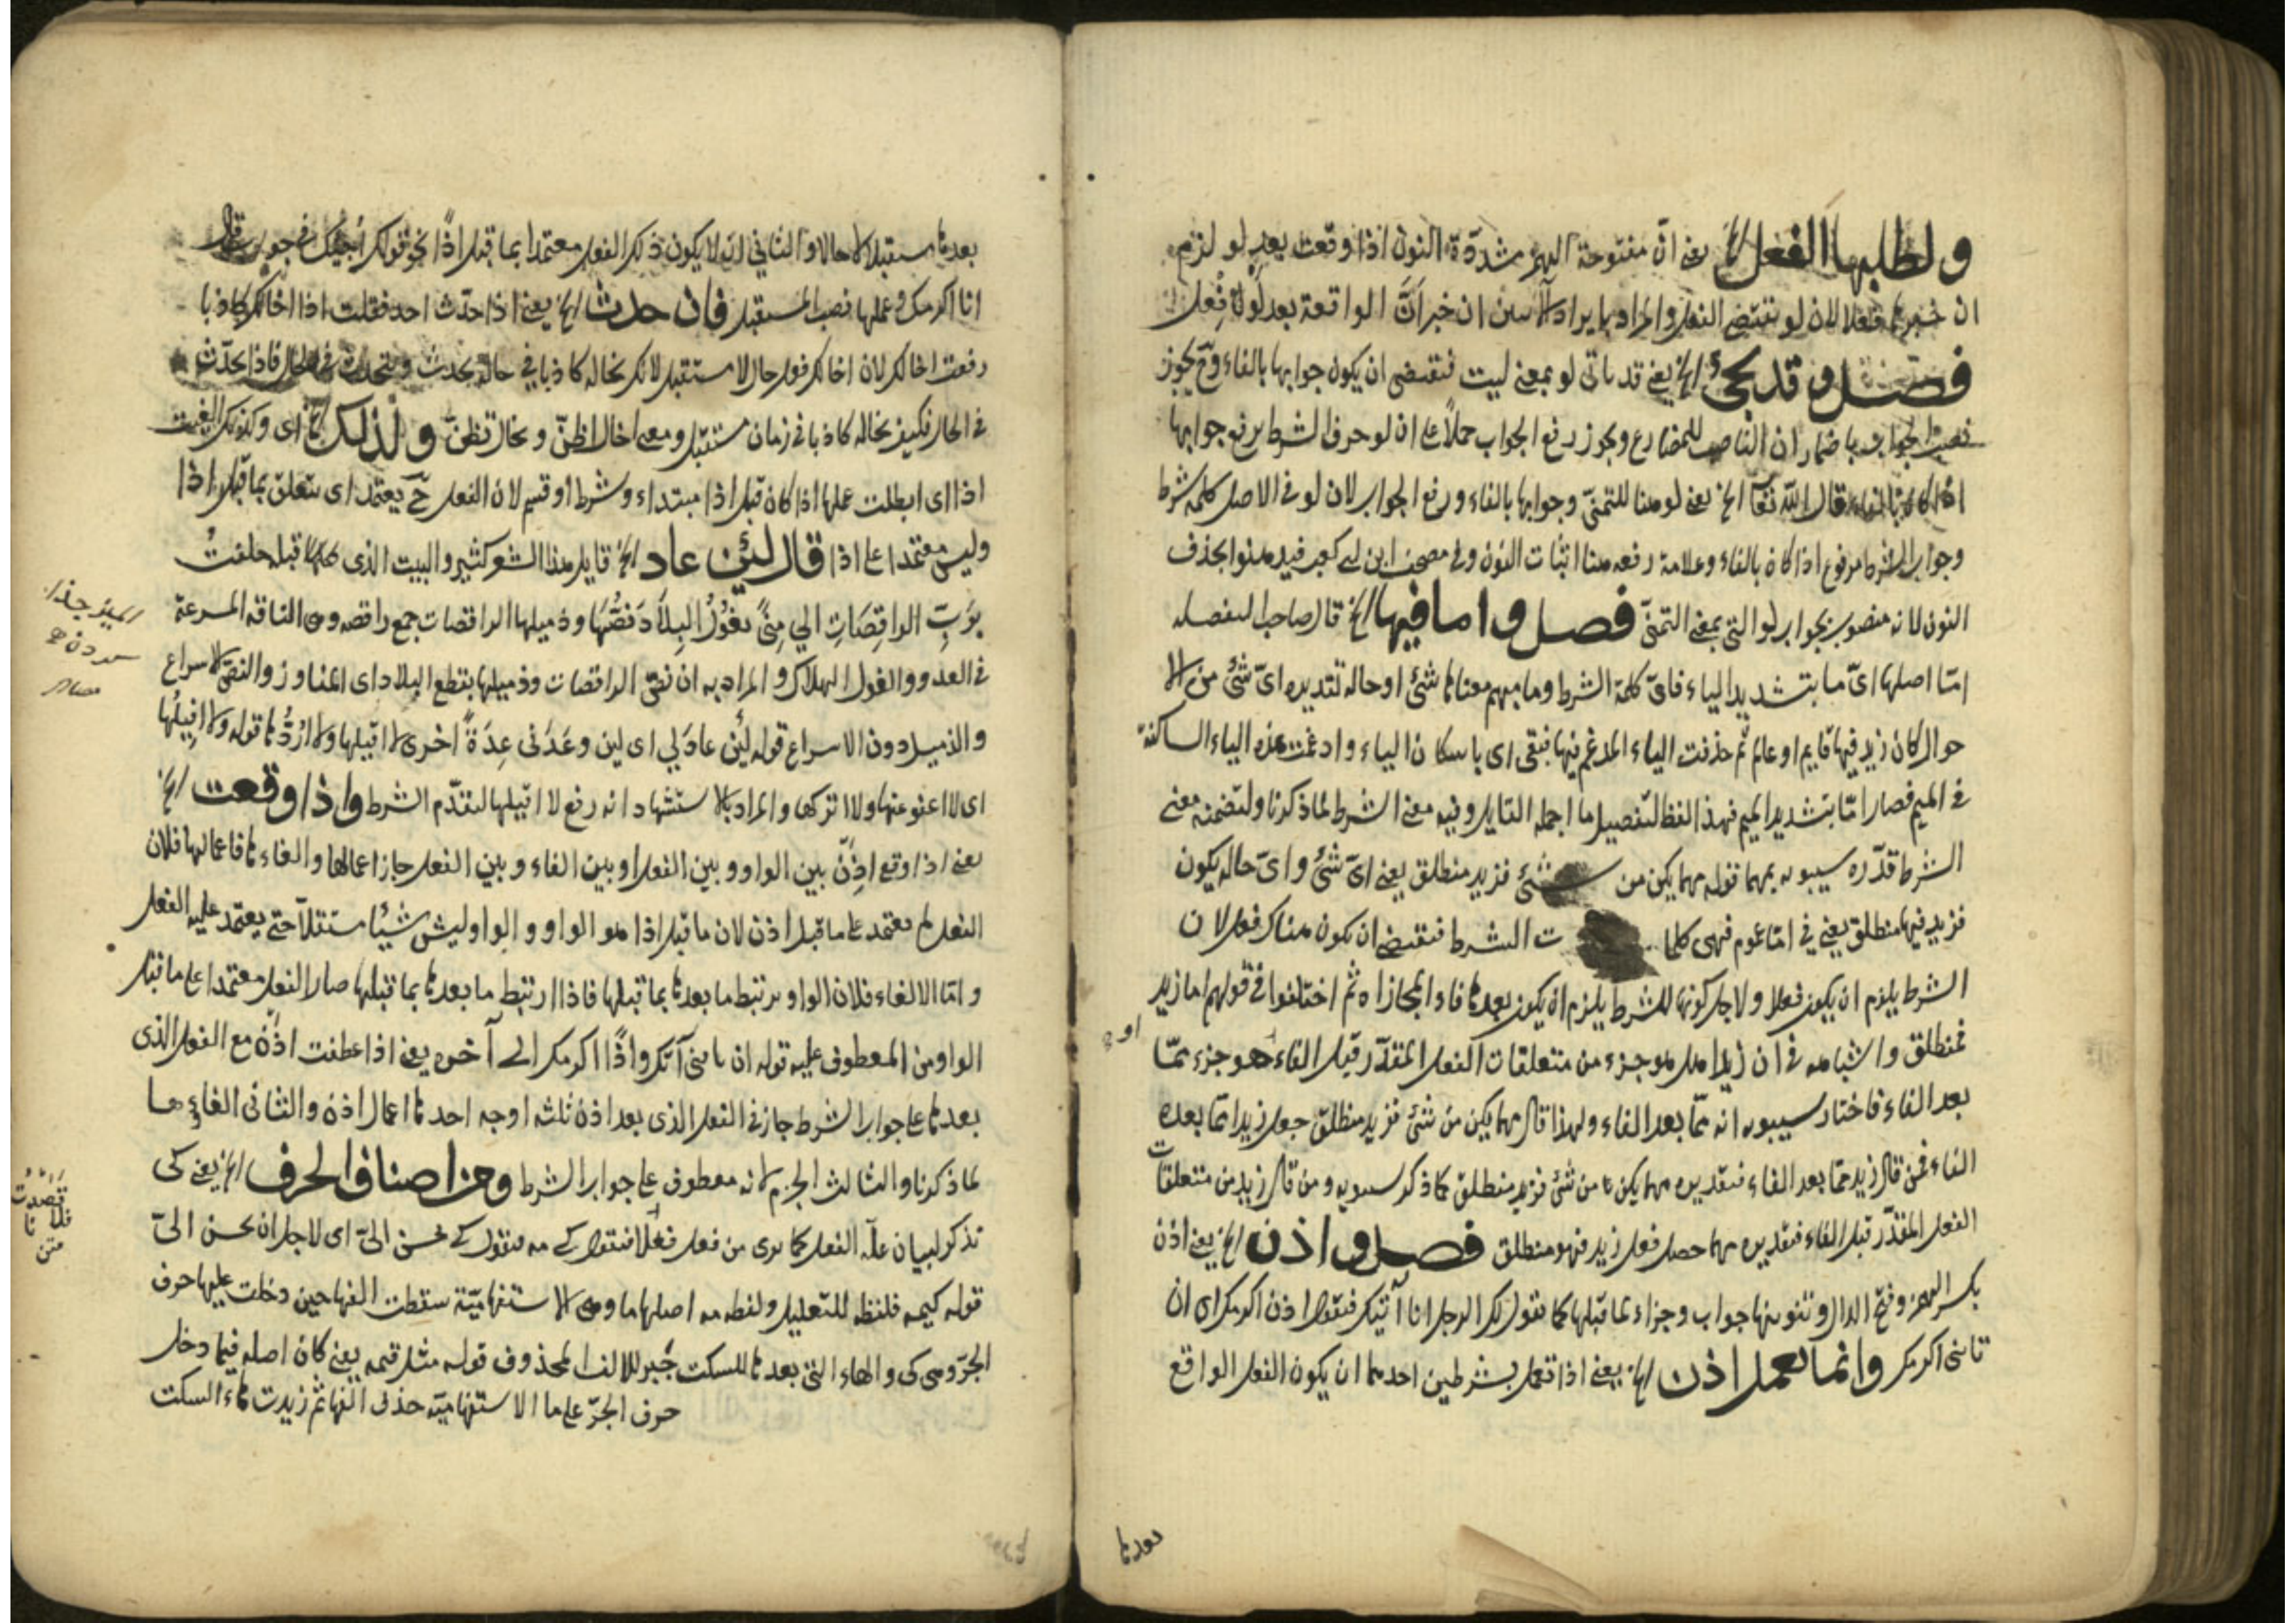 ولطلبها الفعل الخ يعني انّ مفتوحة الهمزة مشدّدة النون اذا وقعت بعد لو لزم
ان خبرها فعلا لان لو تقتضي الفعل والمراد بايراد الا سن ان خبر انّ الواقعة بعد لو لا فعل
فصل وقد يجئ الخ يعني قد ياتى لو بمعنى ليت فتقتضى ان يكون جوابها بالفاء وح يجوز
نصب الجواب باضمار ان الناصب للمضارع ويجوز رفع الجواب حملاً على ان لو حرف الشرط يرفع جوابها
اذا كان بالفاء قال الله تعالى الخ يعني لو هنا للتمنى وجوابها بالفاء ورفع الجواب لان لو في الاصل كلمة شرط
وجواب الشرط مرفوع اذا كان بالفاء وعلامة رفعه هنا اثبات النون وفي مصحف ابن ابى كعب فيدهنوا بحذف
النون لانه منصوب بجواب لو التى بمعنى التمنّى فصل واما فيها الخ قال صاحب المفصل
امّا اصلها اىّ ما بتشديد الياء فاىّ كلمة الشرط وما مبهم معناها شئ او حاله تقديره اىّ شئ من الا
حوال كان زيد فيها قايم او عالم ثم حذفت الياء المدغم فيها فبقى اى باسكان الياء وادغمت هذه الياء الساكنة
في الميم فصار امّا بتشديد الميم فهذا لفظ لتفصيل ما اجمله القايل وفيه معنى الشرط لما ذكرنا ولتضمنه معنى
الشرط قدّره سيبويه بمهما قوله مهما يكن من شئ فزيد منطلق يعني اىّ شئ واىّ حاله يكون
فزيد فيها منطلق يعني في امّا عموم فهى كلما ت الشرط فتقتضي ان يكون هناك فعل لان
الشرط يلزم ان يكون فعلا ولاجل كونها للشرط يلزم ان يكون بعدها فاء المجازاة ثم اختلفوا في قولهم اما زيد
فمنطلق واشباهه في ان زيدا هل هو جزء من متعلقات الفعل المقدّر قبل الفاء او هو جزء ممّا
بعد الفاء فاختار سيبويه انه ممّا بعد الفاء ولهذا قال مهما يكن من شئ فزيد منطلق جعل زيدا ممّا بعده
الفاء فمن قال زيد ممّا بعد الفاء فتقديره مهما يكن من شئ فزيد منطلق كما ذكر سيبويه ومن قال زيد من متعلقات
الفعل المقدّر قبل الفاء فتقديره مهما حصل فعل زيد فهو منطلق فصل واذن الخ يعني اذن
بكسر الهمزة وفتح الذال وتنوينها جواب وجزاء لما قبلها كما تقول لك الرجل انا آتيك فتقول اذن اكرمك اى ان
تاتنى اكرمك وانما تعمل اذن الخ يعني اذا تعمل بشرطين احدهما ان يكون الفعل الواقع
بعدها
بعدها مستقبلا لا حالا والثاني ان لا يكون ذلك الفعل معتمدا بما قبل اذاً نحو قولك اجيئك في جواب من قال
انا اكرمك وعملها نصب المستقبل فان حدث الخ يعني اذا حدّث احد فقلت اذا اخالك كاذبا
رفعت اخالك لان اخالك فعل حال لا مستقبل لانك تخاله كاذبا في حاله يحدث فاذا يحدّث
في الحال فكيف تخاله كاذبا في زمان مستقبل ومعنى اخال اظنّ وتخال تظنّ ولذلك الخ اى وكذلك الغيت
اذا اى ابطلت عملها اذا كان قبل اذا مبتداء وشرط او قسم لان الفعل ح يعتمد اى يتعلق بما قبل اذا
وليس معتمدا على اذا قال لئن عاد الخ قايل هذا الشعر كثير والبيت الذى قبله حلفتُ
بِرَبِّ الراقِصَاتِ الي مِنًى تَغُوْلُ البِلاَدَ نَصُّهَا وذميلها الراقصات جمع راقصه وهى الناقه المسرعة
في العدو والغول الهلاك والمراد به ان نصّ الراقصات وذميلها يقطع البلاد اى المفاوز والنصّ الاسراع
والذميل دون الاسراع قوله لئن عاد لي اى لين وعَدَنى عِدَةً اخرى لا اقيلها ولا اردّها قوله ولا اقيلها
اى لا اعفو عنها ولا اتركها والمراد بالاستشهاد انه رفع لا اقيلها لتقدّم الشرط واذا وقعت الخ
يعني اذا وقع اذنْ بين الواو وبين الفعل او بين الفاء وبين الفعل جاز اعمالها والغاءها فاعمالها فلان
الفعل لم يعتمد على ما قبل اذن لان ما قبل اذا هو الواو والواو ليس شيئا مستقلاّ حتى يعتمد عليه الفعل
وامّا الالغاء فلان الواو يرتبط ما بعدها بما قبلها فاذا ارتبط ما بعدها بما قبلها صار الفعل معتمدا على ما قبل
الواو من المعطوف عليه قوله ان تاتنى آتك واذًا اكرمك الى آخره يعني اذا عطفت اذن مع الفعل الذى
بعدها على جواب الشرط جاز في الفعل الذى بعد اذن ثلثه اوجه احدها اعمال اذن والثانى الغاؤها
لما ذكرنا والثالث الجزم لانه معطوف على جواب الشرط ومن اصناف الحرف الخ يعني كى
تذكر لبيان علّة الفعل كما يرى من فعل فعلا فتقول كى مه فتقول كى تحسن الىّ اى لاجل ان تحسن الىّ
قوله كيمه فلفظه للتعليل ولفظ مه اصلها ما وهى الاستفهاميّة سقطت الفها حين دخلت عليها حرف
الجرّ وهى كى والهاء التى بعدها للسكت جُبر للالف المحذوف قوله مثل فيمه يعني كان اصله فيما دخل
حرف الجرّ على ما الاستفهاميّه حذف الفها ثم زيدت هاء السكت